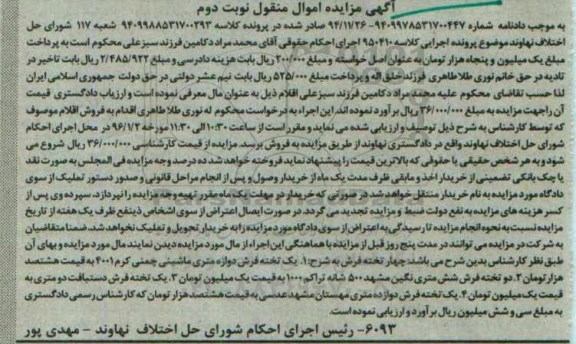 آگهی مزایده اموال منقول نوبت دوم
به موجب دادنامه شماره ۹۴۰۹۹۷۸۵۳۱۷۰۰۴۴۷- ۹۴/۱۱/۲۶ صادر شده در پرونده کلاسه ۹۴۰۹۹۸۸۵۳۱۷۰۰۲۹۳ شعبه ۱۱۷ شورای حل
اختلاف نهاوند موضوع پرونده اجرایی کلاسه ۹۵۰۴۱۰ اجرای احکام حقوقی آقای محمد مراد دکامین فرزند سبزعلی محکوم است به پرداخت
مبلغ یک میلیون و پنجاه هزار تومان به عنوان اصل خواسته و مبلغ ۲۰۰/۰۰۰ ریال بابت هزینه دادرسی و مبلغ ۲/۴۸۵/۹۲۲ ریال بابت تاخیر در
تادیه در حق خانم نوری طلا طاهری فرزند خلق اله و پرداخت مبلغ ۵۲۵/۰۰۰ ریال بابت نیم عشر دولتی در حق دولت جمهوری اسلامی ایران
لذا حسب تقاضای محکوم علیه محمد مراد دکامین فرزند سبزعلی اقلام ذیل به عنوان مال معرفی نموده است و ارزیاب دادگستری قیمت
آن را جهت مزایده به مبلغ ۳۶/۰۰۰/۰۰۰ ریال برآورد نموده اند این اجراء به درخواست محکوم له نوری طلا طاهری اقدام به فروش اقلام موصوف
که توسط کارشناس به شرح ذیل توصیف و ارزیابی شده می نماید و مقرر است از ساعت ۱۰:۳۰ الی ۱۱:۳۰ مورخه ۹۶/۱/۲ در محل اجرای احکام
شورای حل اختلاف نهاوند واقع در دادگستری نهاوند از طریق مزایده به فروش برسد. مزایده از قیمت کارشناسی ۳۶/۰۰۰/۰۰۰ ریال شروع می
شود و به هر شخص حقیقی یا حقوقی که بالاترین قیمت را پیشنهاد نماید فروخته خواهد شد ده درصد وجه مزایده فی المجلس به صورت نقد
یا چک بانکی تضمینی از خریدار اخذ و مابقی ظرف مدت یک ماه از خریدار وصول و پس از انجام مراحل قانونی و صدور دستور تملیک از سوی
دادگاه مورد مزایده به نام خریدار منتقل خواهد شد. در صورتی که خریدار در مهلت یک ماه مقرر تهیه وجه مزایده را نپردازد، سپرده وی پس از
کسر هزینه های مزایده به نفع دولت ضبط و مزایده تجدید می گردد. در صورت ایصال اعتراض از سوی اشخاص ذینفع ظرف یک هفته از تاریخ
مزایده نسبت به نحوه انجام مزایده تا رسیدگی به اعتراض از سوی دادگاه مورد مزایده را به خریدار تحویل و تملیک نخواهد شد. ضمنا متقاضیان
به شرکت در مزایده می توانند در مدت پنج روز قبل از مزایده با هماهنگی این اجراء از مال مورد مزایده دیدن نمایند مال مورد مزایده و بهای آن
طبق نظر کارشناس بدین شرح می باشد: چهار تخته فرش به شرح: ۱. یک تخته فرش دوازده متری ماشینی چملی کرم ۴۰۰۱ به قیمت هشتصد
هزار تومان ۲. دو تخته فرش شش متری نگین مشهد ۵۰۰ شانه تراکم ۱۰۰۰ به قیمت یک میلیون تومان ۳. یک تخته فرش دستبافت دو متری به
قیمت یک میلیون تومان ۴. یک تخته فرش دوازده متری مهستان مشهد عدسی به قیمت هشتصد هزار تومان که کارشناس رسمی دادگستری
به مبلغ سی و شش میلیون ریال برآورد و ارزیابی نموده است.
۶۰۹۳- رئیس اجرای احکام شورای حل اختلاف نهاوند - مهدی پور